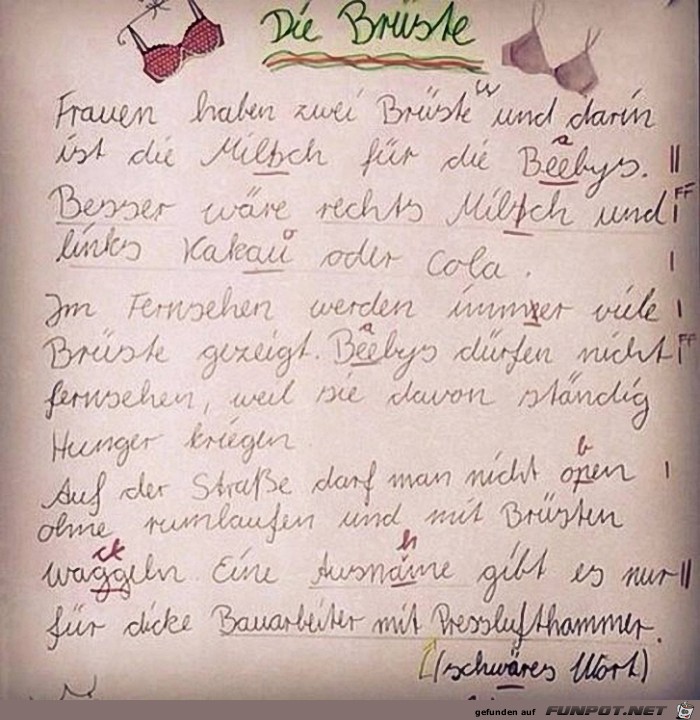 Die Brüste
Frauen haben zwei Brüste und darin
ist die Miltsch für die Beebys.
Besser wäre rechts Miltsch und
links Kakau oder Cola.
Im Fernsehen werden immer viele
Brüste gezeigt. Beebys dürfen nicht
fernsehen, weil sie davon ständig
Hunger kriegen
Auf der Straße darf man nicht open
ohne rumlaufen und mit Brüsten
waggeln. Eine Ausnáme gibt es nur
für dicke Bauarbeiter mit Presslufthammer.
(schwäres Wort)
gefunden auf FUNPOT.NET